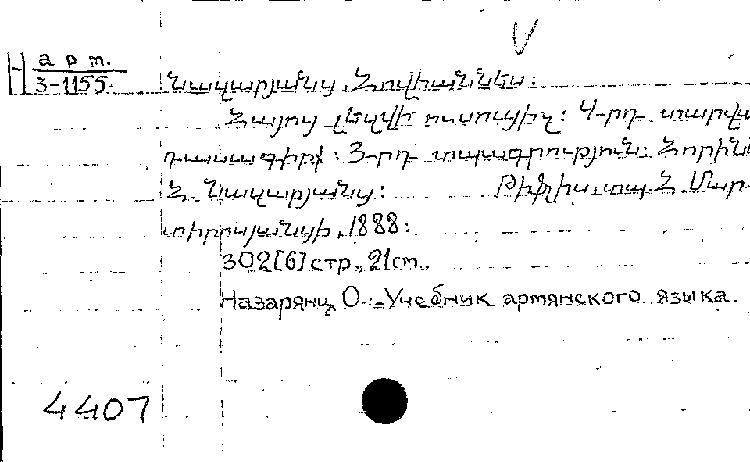 V
Н арт.
3-1155.
Նազարյանց, Հովհաննես:
Հայոց լեզվի ուսուցիչ: 4-րդ տարվա
դասագիրք: 3-րդ տպագրություն: Հորին
Հ. Նազարյանց: Թիֆլիս, տպ. Հ. Մար
տիրոսյանցի, 1888:
302[6] стр., 21см.
Назарянц, О. - Учебник армянского языка.
4407